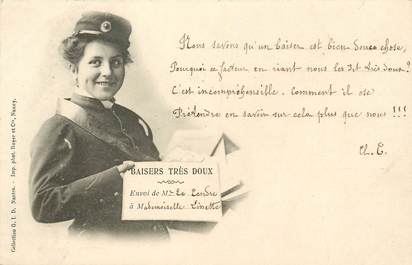 Nous savons qu'un baiser est bien douce chose,
Pourquoi ce facteur en riant nous les dit très doux?
C'est incompréhensible. Comment il ose
Prétendre en savoir sur cela plus que nous!!!
Ch. C.
BAISERS TRÈS DOUX
Envoi de Mr Le Tendre
à Mademoiselle Linette
Collection G. I. D. Nantes. - Imp. phot. Royer et Cie, Nancy.